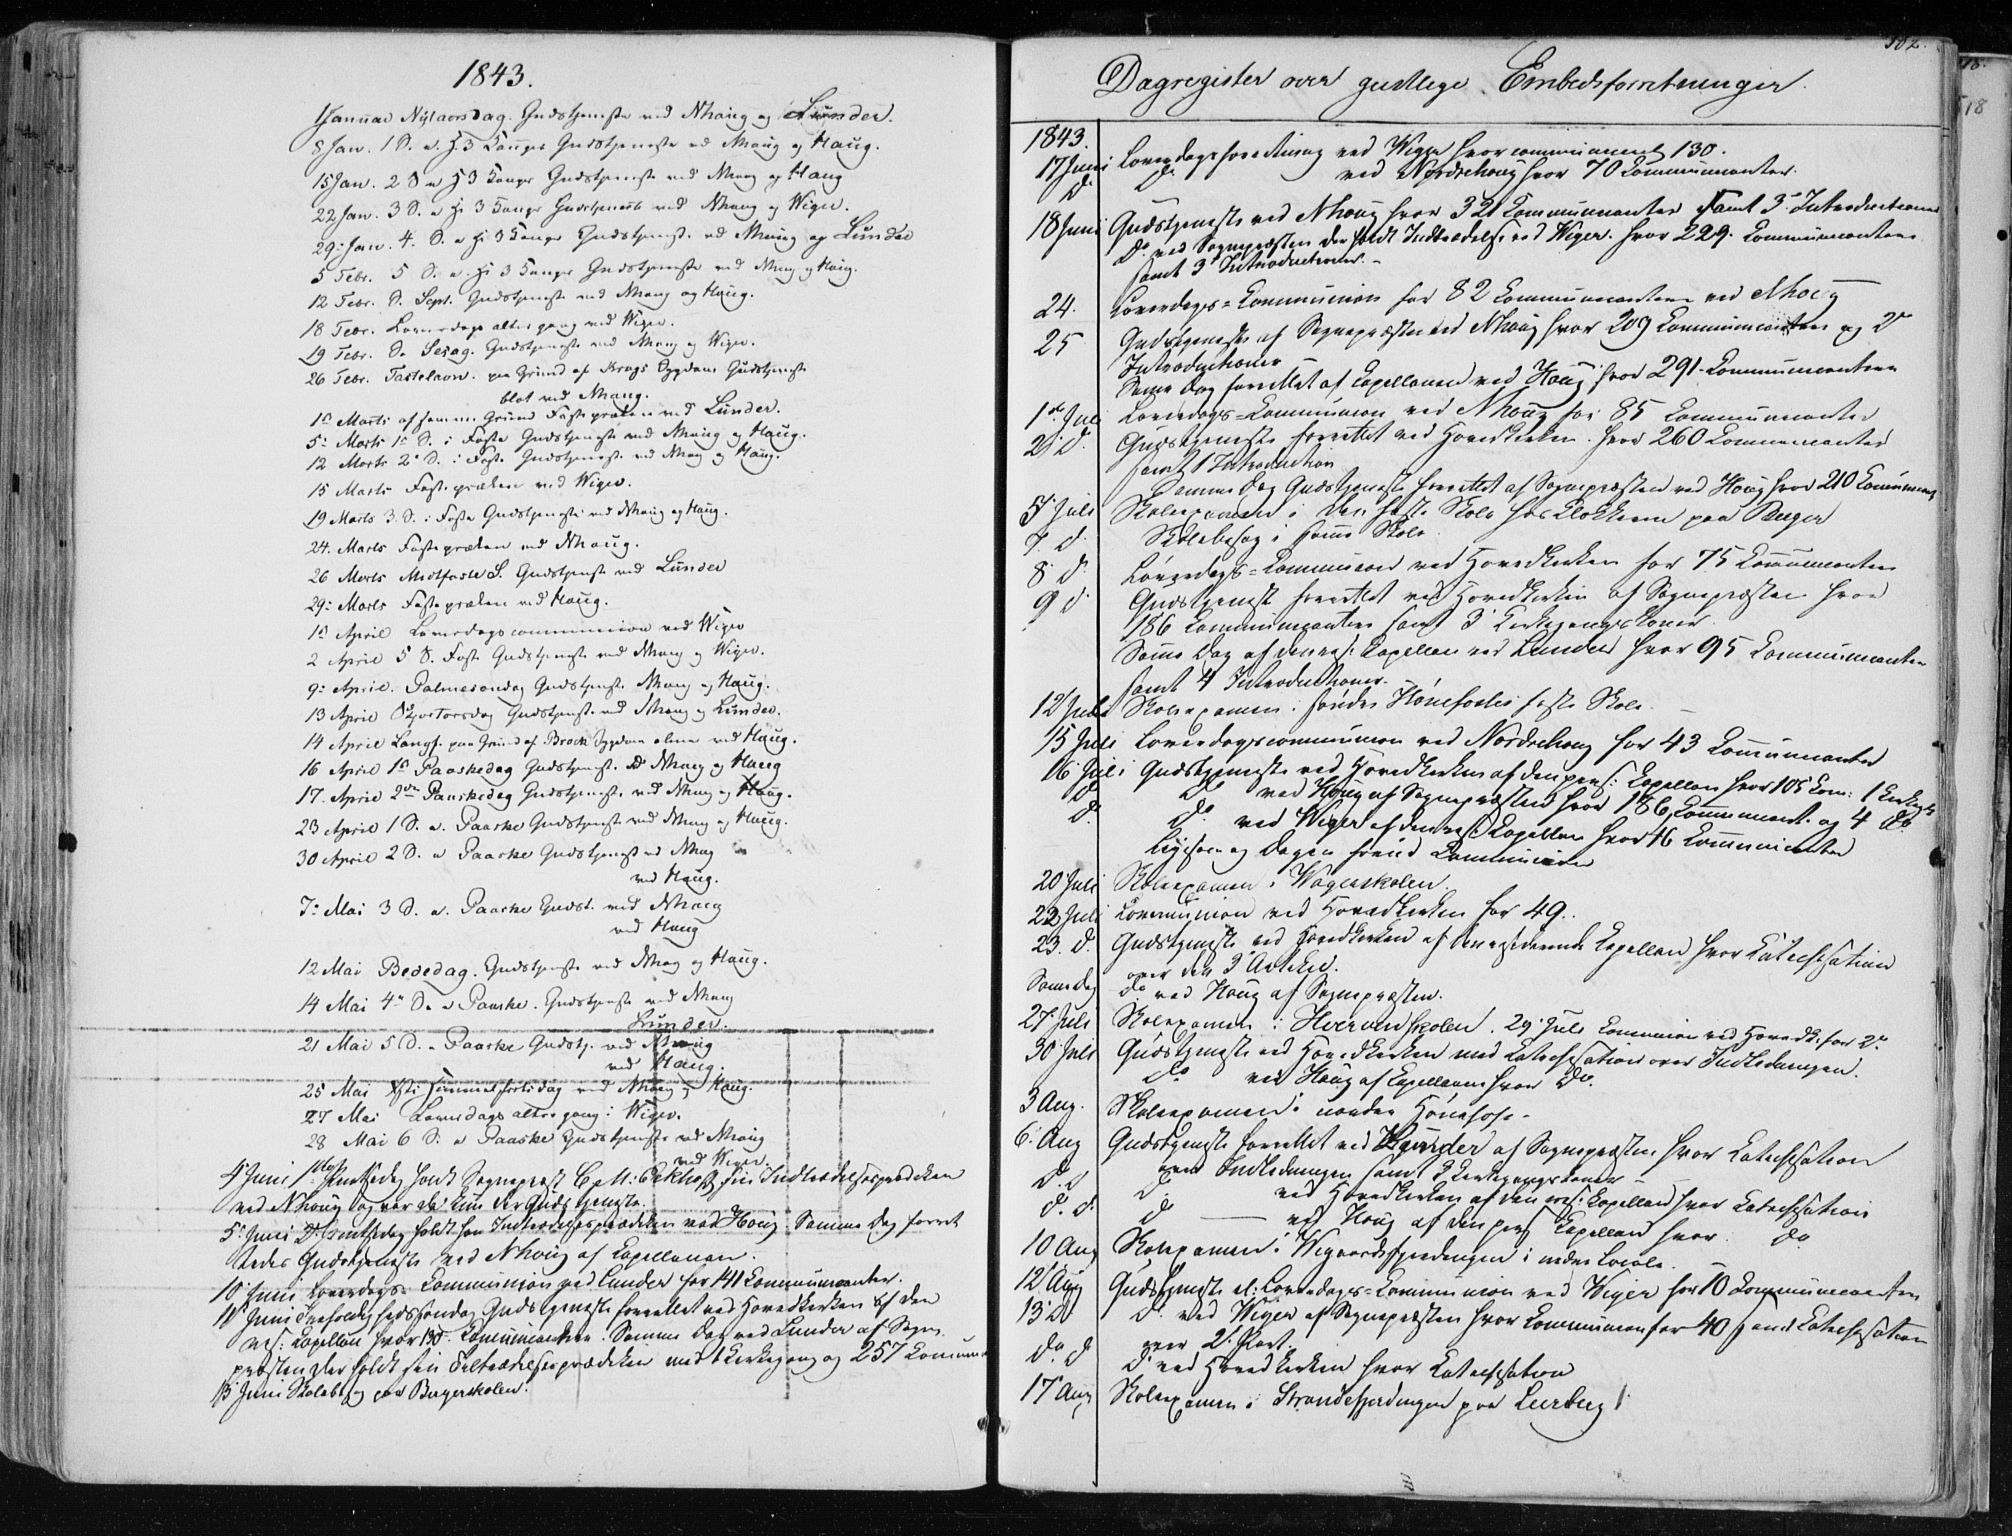 1843.
1 Januar Nytaarsdag. Gudstjeneste ved Nhoug og Lunder.
8 Jan. 1 S. e. H 3 Konger Gudstjeneste ved Nhoug og Haug.
15 Jan. 2 S e H 3 Konger Gudstjeneste ved Nhoug og Haug
22 Jan. 3 S. e H 3 Konger Gudstjeneste ved Nhoug og Wiger.
29: Jan. 4. S. e H 3 Konger Gudstjenest. ved Nhoug og Lunder
5 Febr. 5 S. e. H 3 Konger Gudstjeneste ved Nhoug og Haug.
12 Febr. S. Sept. Gudstjeneste ved Nhoug og Haug.
18 Febr. Løverdags altergang ved Wiger.
19 Febr. S. Sexag. Gudstjeneste ved Nhoug og Wiger.
26 Febr. Fastelavn. paa Grund af Krags Sygdom Gudstjeneste
blot ved Nhoug.
1st Marts af samme Grund Fastepræken ved Lunder.
5: Marts 1st S. i Faste Gudstjeneste ved Nhoug og Haug.
12 Marts 2d S. i Faste Gudstjeneste ved Nhoug og Haug.
15 Marts Fastepræken ved Wiger.
19 Marts 3. S. i Faste Gudstjeneste ved Nhoug og Haug.
24. Marts Fastepræken ved Nhoug.
26 Marts Midfaste S. Gudstjeneste ved Lunder
29: Marts Fastepræken ved Haug.
1st April Løverdagscommunion ved Wiger
2 April 5 S. Faste Gudstjeneste ved Nhoug og Wiger.
9: April. Palmesøndag Gudstjenst. Nhoug og Haug.
13 April Skjertorsdag Gudstjenste ved Nhoug og Lunder.
14 April Langf. paa Grund af Brock Sygdom alene ved Haug.
16 April 1st Paaskedag Gudstjenst. ved Nhoug og Haug
17. April 2den Paaskedag Gudstjeneste ved Nhoug og Haug.
23 April 1 S. e. Paaske Gudstjenst ved Nhoug og Haug.
30 April 2 S. e Paaske Gudstjenest ved Nhoug
ved Haug.
7: Mai 3 S. e. Paaske Gudst. ved Nhoug
ved Haug
12 Mai Bededag. Gudstjenste ved Nhoug og Haug.
14 Mai 4de S. e Paaske. Gudstjenste ved Nhoug
Lunder.
21 Mai 5 S. e Paaske Gudstj. ved Nhoug
ved Haug.
25 Mai Chr: Himmelfartsdag ved Nhoug og Haug.
27 Mai Løverdags altergang i Wiger.
28 Mai 6 S. e Paaske Gudstjenste ved Nhoug
ved Wiger.
4 Juni 1ste Pintsedag holdt Sognepræst sin Indtrædelsesprædiken
ved Nhoug og var det kun der Gudstjeneste.
5 Juni 2. Pintsedag holdt han Indtrædelsesprædiken ved Houg. Samme Dag forret
tedes Gudstjeneste ved Nhoug af Capellanen.
10 Juni Løverdags Communion ved Lunder for 141 Communicanter.
11 Juni Trefoldighedssøndag Gudstjeneste forrettet ved Hovedkirken af den
res: Capellan hvor 130 Communicanter. Samme Dag ved Lunder af Sogne
præsten der holdt sin Tiltrædelsesprædiken med 1 Kirkegang og 257 Commun
13 Juni Skolebesøg paa Bergerskolen.
Dagregister over geistlege Embedsforretninger.
1843.
17 Juni Løverdagsforretning ved Wiger hvor communicent 130.
D. D. ved Nordrehoug hvor 70 Communicanter.
18 Juni Gudstjeneste ved Nhoug hvor 321 Communicanter samt 3 Introductioner
D. ved Sognepræsten der holdt Indtrædelse ved Wiger. hvor 229. Communicantere
samt 3 Introductioner. -
24. Løverdags-Communion for 82 Communicantere ved Nhoug
25 Gudstjeneste af Sognepræsten ved Nhoug hvor 209 Communicanter og 2
Introductioner -
Samme Dag forrettet af Capellanen ved Houg hvor 291 Communicantere
1ste Juli Løverdags-Communion ved Nhoug for 85 Communicanter
2 d. Gudstjeneste forrettet ved Hovedkirken. hvor 260 Communicanter
samt 1 Introduction
Samme Dag Gudstjeneste forrettet af Sognepræsten ved Houg hvor 210 Communicant
5 Juli Skoleexamen i den faste Skole hos Klokkeren paa Berger
7. d. Skolebesøg i samme Skole
8 d. Løverdags-Communion ved Hovedkirken for 75 Communicanter
9 d. Gudstjenest forrettet ved Hovedkirken af Sognepræsten hvor
186 Communicantere samt 3 Kirkegangskoner.
Samme Dag af den res: Capellan ved Lunder hvor 95 Communicanter
samt 4 Introductioner.
12 Juli Skoleexamen i søndre Hønefosses faste Skole. -
15 Juli Løverdagscommunion ved Nordrehoug for 43 Communicanter
16 Juli Gudstjeneste ved Hovedkirken af den pers: Capellan hvor 105 Com: 1
D. D. ved Houg af Sognepræsten hvor 186 Communicent. og 4 D.
D. D. ved Wiger af den res Capellan hvor 16 Communicanter
ligesom og Dagen forud Communion
20 Juli Skoleexamen i Wagerskolen
22 Juli Communion ved Hovedkirken for 49.
23. d. Gudstjeneste ved Hovedkirken af den residerende Capellan hvor Catechisation
over den 3 Artikel.
Same Dag D. ved Houg af Sognepræsten.
27 Juli Skoleexamen i Hvervenskolen. 29 Juli Communion ved Hovedk. for 2.
30 Juli Gudstjeneste ved Hovedkirken med Catechisation over Indledningen.
D. ved Houg af Capellanen hvor D.
3 Aug. Skoleexamen i nordre Hønefoss -
6. Aug Gudstjeneste forrettet ved Lunder af Sognepræsten hvor Catechisation
over Indledningen samt 3 Kirkegangskoner -
d. d D. ved Hovedkirken af den res: Capellan hvor Catechisation
d. d. D. ved Houg af den pers Capellan hvor D.
10 Aug Skoleexamen i Wegaardsfjerdingen i nedre Locale. -
12 Aug Gudstjeneste el: Løverdags-Communion ved Wiger for 10 Communicanter
13 d D. ved Wiger af Sognepræsten hvor Communion for 40 samt Catechisation
over 2. Part.
D. d D. ved Hovedkirken hvor Catechisation
17 Aug Skoleexamen i Strandefjerdingen paa Leerberg